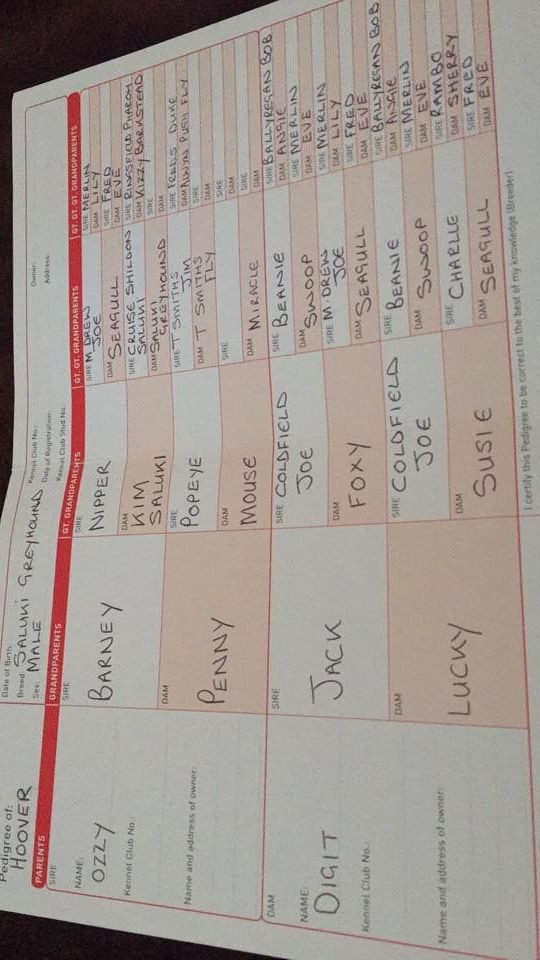 Pedigree of:
HOOVER
Date of Birth:
Breed: SALUKI GREYHOUND
Sex: MALE
Kennel Club No.:
Date of Registration:
Kennel Club Stud No.:
Owner:
Address:
PARENTS
GRANDPARENTS
GT. GRANDPARENTS
GT. GT. GRANDPARENTS
GT. GT. GT. GRANDPARENTS
SIRE
NAME:
OZZY
Kennel Club No.:
Name and address of owner:
DAM
NAME:
DIGIT
Kennel Club No.:
Name and address of owner:
SIRE
BARNEY
DAM
PENNY
SIRE
JACK
DAM
LUCKY
SIRE
NIPPER
DAM
KIM
SALUKI
SIRE
POPEYE
DAM
MOUSE
SIRE COLDFIELD
JOE
DAM
FOXY
SIRE COLDFIELD
JOE
DAM
SUSIE
SIRE M DREW
JOE
DAM SEAGULL
SIRE CRUISE SHILDON
SALUKI
DAM SALUKI
GREYHOUND
SIRE T SMITHS
JIM
DAM T SMITHS
FLY
SIRE
DAM MIRACLE
SIRE BEANIE
DAM SWOOP
SIRE M DREW
JOE
DAM SEAGULL
SIRE BEANIE
DAM SWOOP
SIRE CHARLIE
DAM SEAGULL
SIRE MERLIN
DAM LILY
SIRE FRED
DAM EVE
SIRE RINGSFIELD
DAM KIZZY BARKSTEAD
SIRE
DAM
SIRE FREDS DUKE
DAM ALWYN PUSH FLY
SIRE
DAM
SIRE
DAM
SIRE
DAM
SIRE BALLYREGAN BOB
DAM ANGIE
SIRE MERLIN
DAM EVE
SIRE MERLIN
DAM LILY
SIRE FRED
DAM EVE
SIRE BALLYREGAN BOB
DAM ANGIE
SIRE MERLIN
DAM EVE
SIRE RAMBO
DAM SHERRY
SIRE FRED
DAM EVE
I certify this Pedigree to be correct to the best of my knowledge (Breeder)